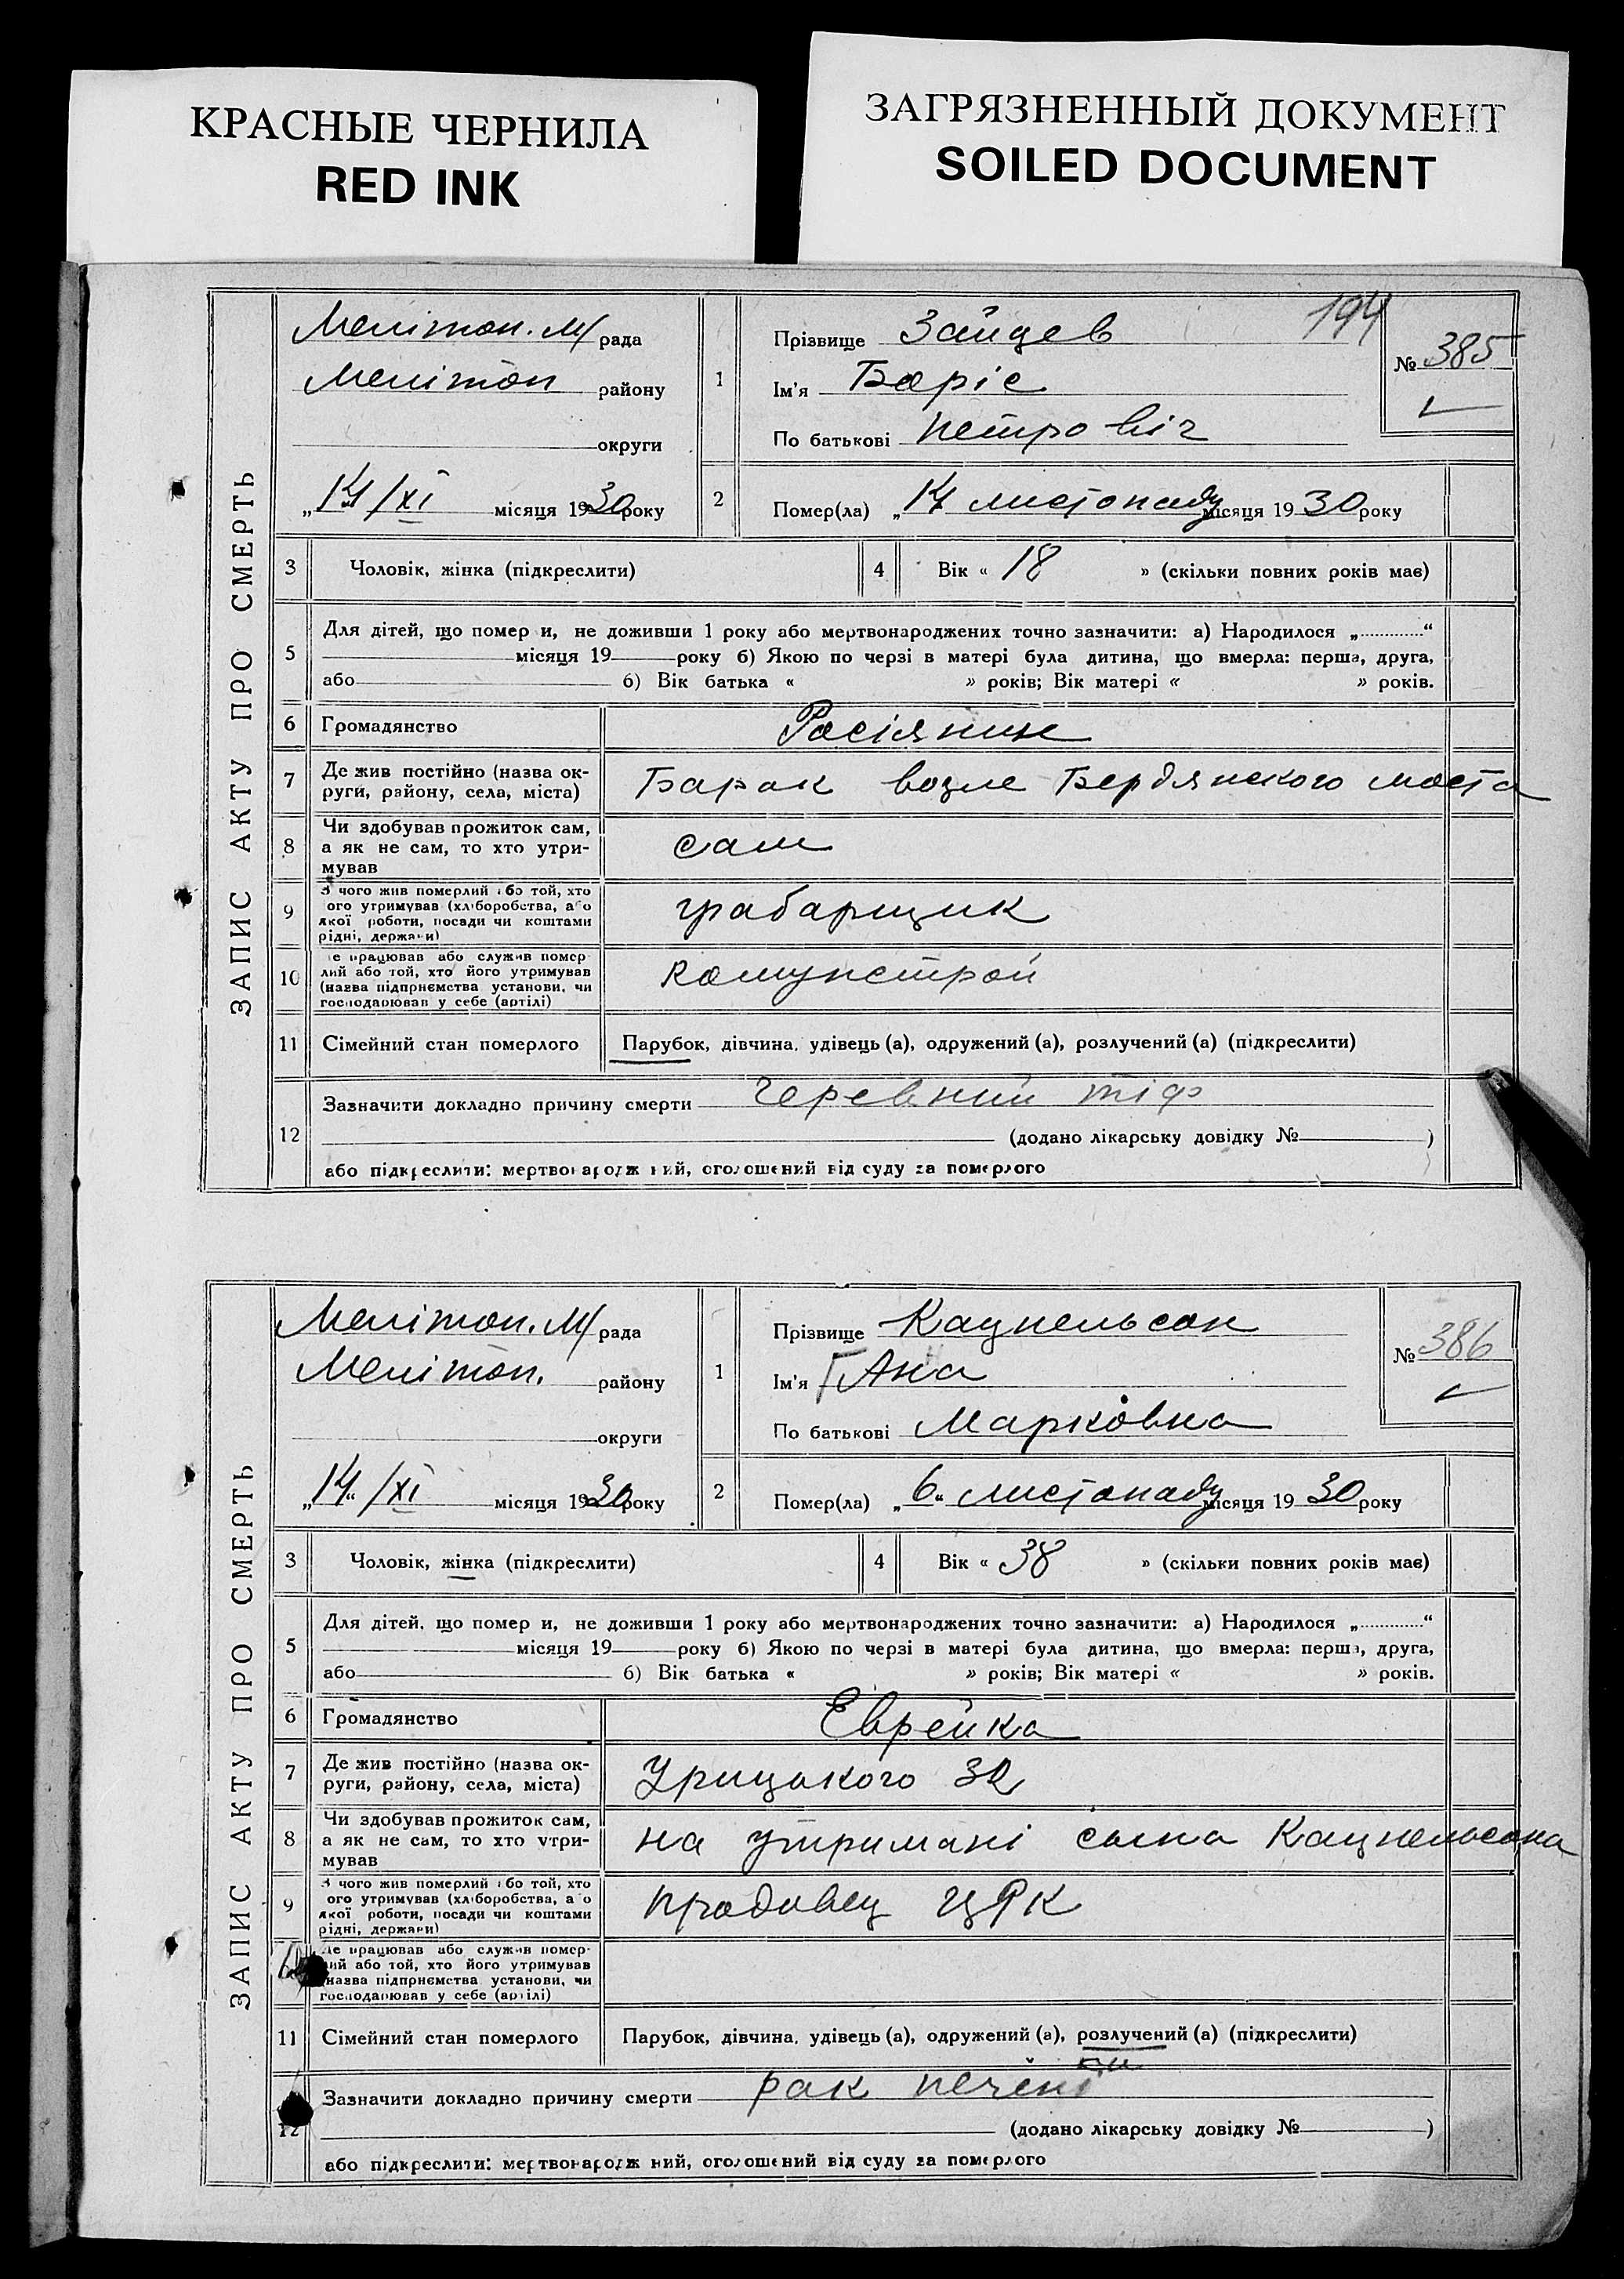 КРАСНЫЕ ЧЕРНИЛА
RED INK
ЗАГРЯЗНЕННЫЙ ДОКУМЕНТ
SOILED DOCUMENT
ЗАПИС АКТУ ПРО СМЕРТЬ
Мелітоп. М/ рада
Мелітоп району
округи
„14/XI місяця 1930 року
1
Прізвище Зайцев
194
№ 385
Ім'я Боріс
По батькові Петровіч
2 Помер(ла) „14 листопаду місяця 1930 року
3 Чоловік, жінка (підкреслити)
4 Вік « 18 » (скільки повних років має)
5 Для дітей, що помер и, не доживши 1 року або мертвонароджених точно зазначити: а) Народилося „ “
місяця 19 року б) Якою по черзі в матері була дитина, що вмерла: перша, друга,
або б) Вік батька « » років; Вік матері « » років.
6 Громадянство Росіянин
7 Де жив постійно (назва ок-
руги, району, села, міста) Барак возле Бердянского моста
8 Чи здобував прожиток сам,
а як не сам, то хто утри-
мував сам
9 З чого жив померлий або той, хто
ого утримував (хліборобства, або
якої роботи, посади чи коштами
рідні, держави) грабарщик
10 е працював або служив помер
лий або той, хто його утримував
(назва підприємства установи, чи
господарював у себе (артілі) Комунстрой
11 Сімейний стан померлого Парубок, дівчина, удівець (а), одружений (а), розлучений (а) (підкреслити)
12 Зазначити докладно причину смерти Черевний тіф
(додано лікарську довідку № )
або підкреслити: мертвонародж ний, оголошений від суду за померлого
ЗАПИС АКТУ ПРО СМЕРТЬ
Мелітоп. М/ рада
Мелітоп. району
округи
„14“/XI місяця 1930 року
1
Прізвище Кацнельсон
№ 386
Ім'я Ана
По батькові Марковна
2 Помер(ла) „6“ листопаду місяця 1930 року
3 Чоловік, жінка (підкреслити)
4 Вік « 38 » (скільки повних років має)
5 Для дітей, що помер и, не доживши 1 року або мертвонароджених точно зазначити: а) Народилося „ “
місяця 19 року б) Якою по черзі в матері була дитина, що вмерла: перша, друга,
або б) Вік батька « » років; Вік матері « » років.
6 Громадянство Еврейка
7 Де жив постійно (назва ок-
руги, району, села, міста) Урицького 32
8 Чи здобував прожиток сам,
а як не сам, то хто утри-
мував на утримані сына Кацнельсона
9 З чого жив померлий або той, хто
ого утримував (хліборобства, а о
якої роботи, посади чи коштами
рідні, держави) продавец ЦРК
Де працював або служив помер-
ий або той, хто його утримував
назва підприємства установи, чи
господарював у себе (артілі)
11 Сімейний стан померлого Парубок, дівчина, удівець (а), одружений (а), розлучений (а) (підкреслити)
12 Зазначити докладно причину смерти рак печені
(додано лікарську довідку № )
або підкреслити: мертвонародж ний, оголошений від суду за померлого